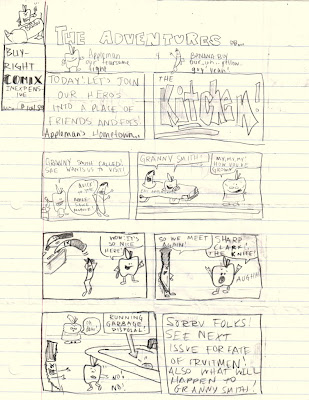 THE ADVENTURES
BUY-
RIGHT
COMIX
INEXPEN-
SIVE
Appleman
our fearsome
fight
&
BANANA BOY
our un... yellow
guy. Yeah!
TODAY! LET'S JOIN
OUR HERO'S
INTO A PLACE OF
FRIENDS AND FOES!
Appleman's Hometown..
THE
KitCHEN!
GRANNY SMITH CALLED!
SHE WANTS US TO VISIT!
GRANNY SMITH!
MY, MY, MY!
HOW YOU'VE
GROWN!
WOW! IT'S
SO NICE
HERE!
SO WE MEET
AGAIN!
SHARP
CLARK!
THE KNIFE!
AUGH!
RUNNING
GARBAGE
DISPOSAL!
NO!
NO!
SORRY FOLKS!
SEE NEXT
ISSUE FOR FATE
OF FRUITMEN!
ALSO WHAT WILL
HAPPEN TO
GRANNY SMITH!